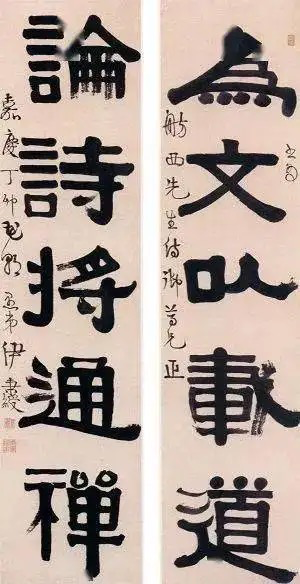 為文以載道
舫西先生侍御尊兄正
論詩將通禪
嘉慶丁卯花朝愚弟伊秉綬